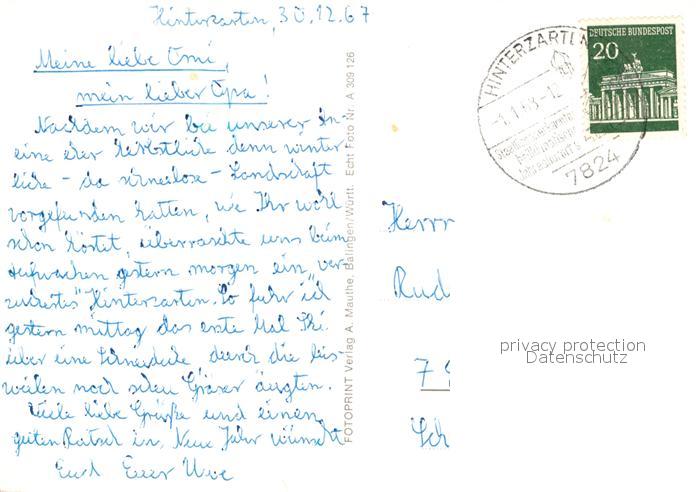 Hinterzarten, 30.12.67
Meine liebe Omi,
mein lieber Opa!
Nachdem wir bei unserer An-
eine eher herbstliche denn winter
liche - da schneelose - Landschaft
vorgefunden hatten, wie Ihr wohl
schon hörtet, überraschte uns beim
Aufwachen gestern morgen ein „ver-
zuckertes" Hinterzarten. So fuhr ich
gestern mittag das erste Mal Ski
über eine Schneedecke durch die bis-
weilen noch schon Gräser äugten.
Viele liebe Grüße und einen
guten Rutsch ins Neue Jahr wünscht
Euch Euer Uwe
FOTOPRINT Verlag A. Mauthe, Balingen/Württ. Echt Foto Nr. A 309 126
HINTERZARTEN
7824
DEUTSCHE BUNDESPOST
20
Herrn
Rud
7
Sch
privacy protection
Datenschutz